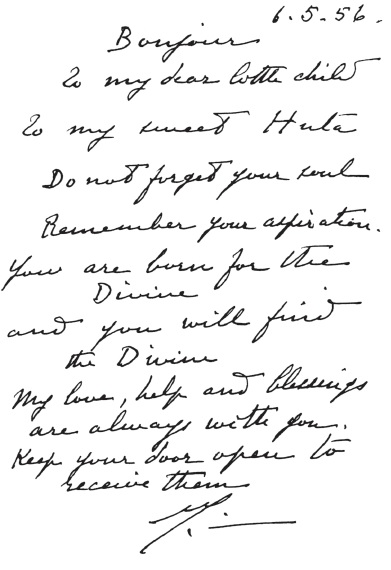 6.5.56.
Bonjour
To my dear little child
To my sweet Huta
Do not forget your soul
Remember your aspiration.
You are born for the
Divine
and you will find
the Divine
My love, help and blessings
are always with you.
Keep your door open to
receive them